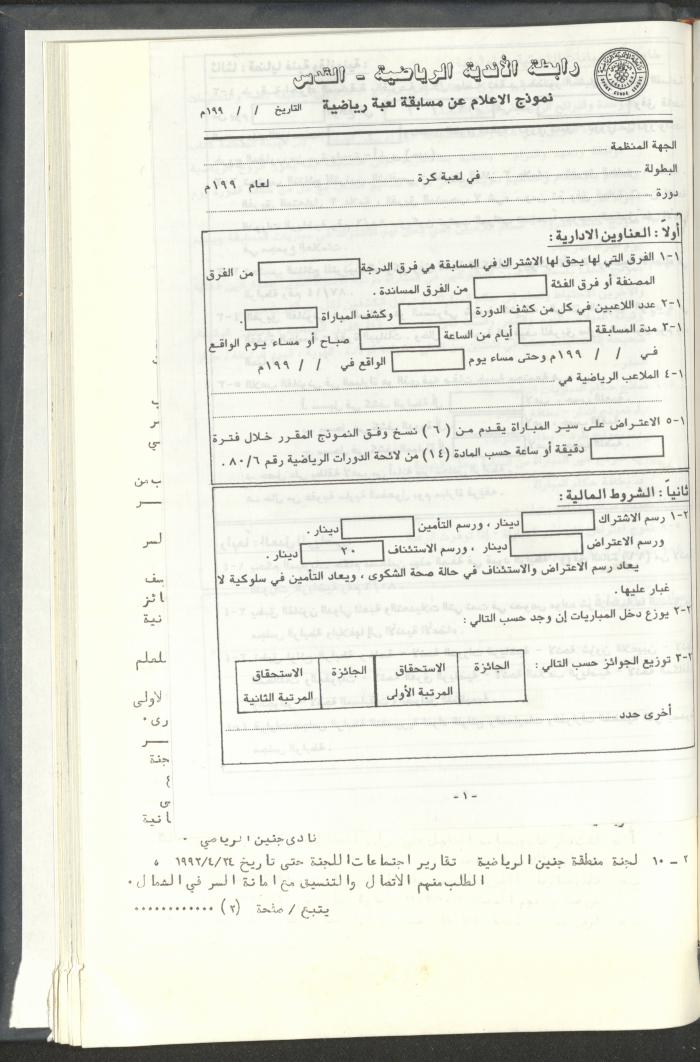 رابطة الأندية الرياضية - القدس
نموذج الاعلام عن مسابقة لعبة رياضية التاريخ / / ١٩٩م
الجهة المنظمة
البطولة في لعبة كرة لعام ١٩٩م
دورة
أولاً : العناوين الادارية :
١-١ الفرق التي لها يحق لها الاشتراك في المسابقة هي فرق الدرجة من الفرق
المصنفة أو فرق الفئة من الفرق المساندة .
٢-١ عدد اللاعبين في كل من كشف الدورة وكشف المباراة .
٣-١ مدة المسابقة أيام من الساعة صباح أو مساء يوم الواقع
في / / ١٩٩م وحتى مساء يوم الواقع في / / ١٩٩م
٤-١ الملاعب الرياضية هي
٥-١ الاعتراض على سير المباراة يقدم من (٦) نسخ وفق النموذج المقرر خلال فترة
دقيقة أو ساعة حسب المادة (١٤) من لائحة الدورات الرياضية رقم ٨٠/٦ .
ثانياً : الشروط المالية :
١-٢ رسم الاشتراك دينار ، ورسم التأمين دينار .
ورسم الاعتراض دينار ، ورسم الاستئناف ٢٠ دينار .
يعاد رسم الاعتراض والاستئناف في حالة صحة الشكوى ، ويعاد التأمين في سلوكية لا
غبار عليها .
٢-٢ يوزع دخل المباريات إن وجد حسب التالي :
٣-٢ توزيع الجوائز حسب التالي :
الجائزة الاستحقاق الجائزة الاستحقاق
المرتبة الأولى المرتبة الثانية
أخرى حدد
-١-
نادي جنين الرياضي
٢ - ١٠ لجنة منطقة جنين الرياضية تقارير اجتماعات اللجنة حتى تاريخ ١٩٩٢/٤/٢٤
الطلب منهم الاتصال والتنسيق مع امانة السر في الشمال.
يتبع / صفحة (٢) ............